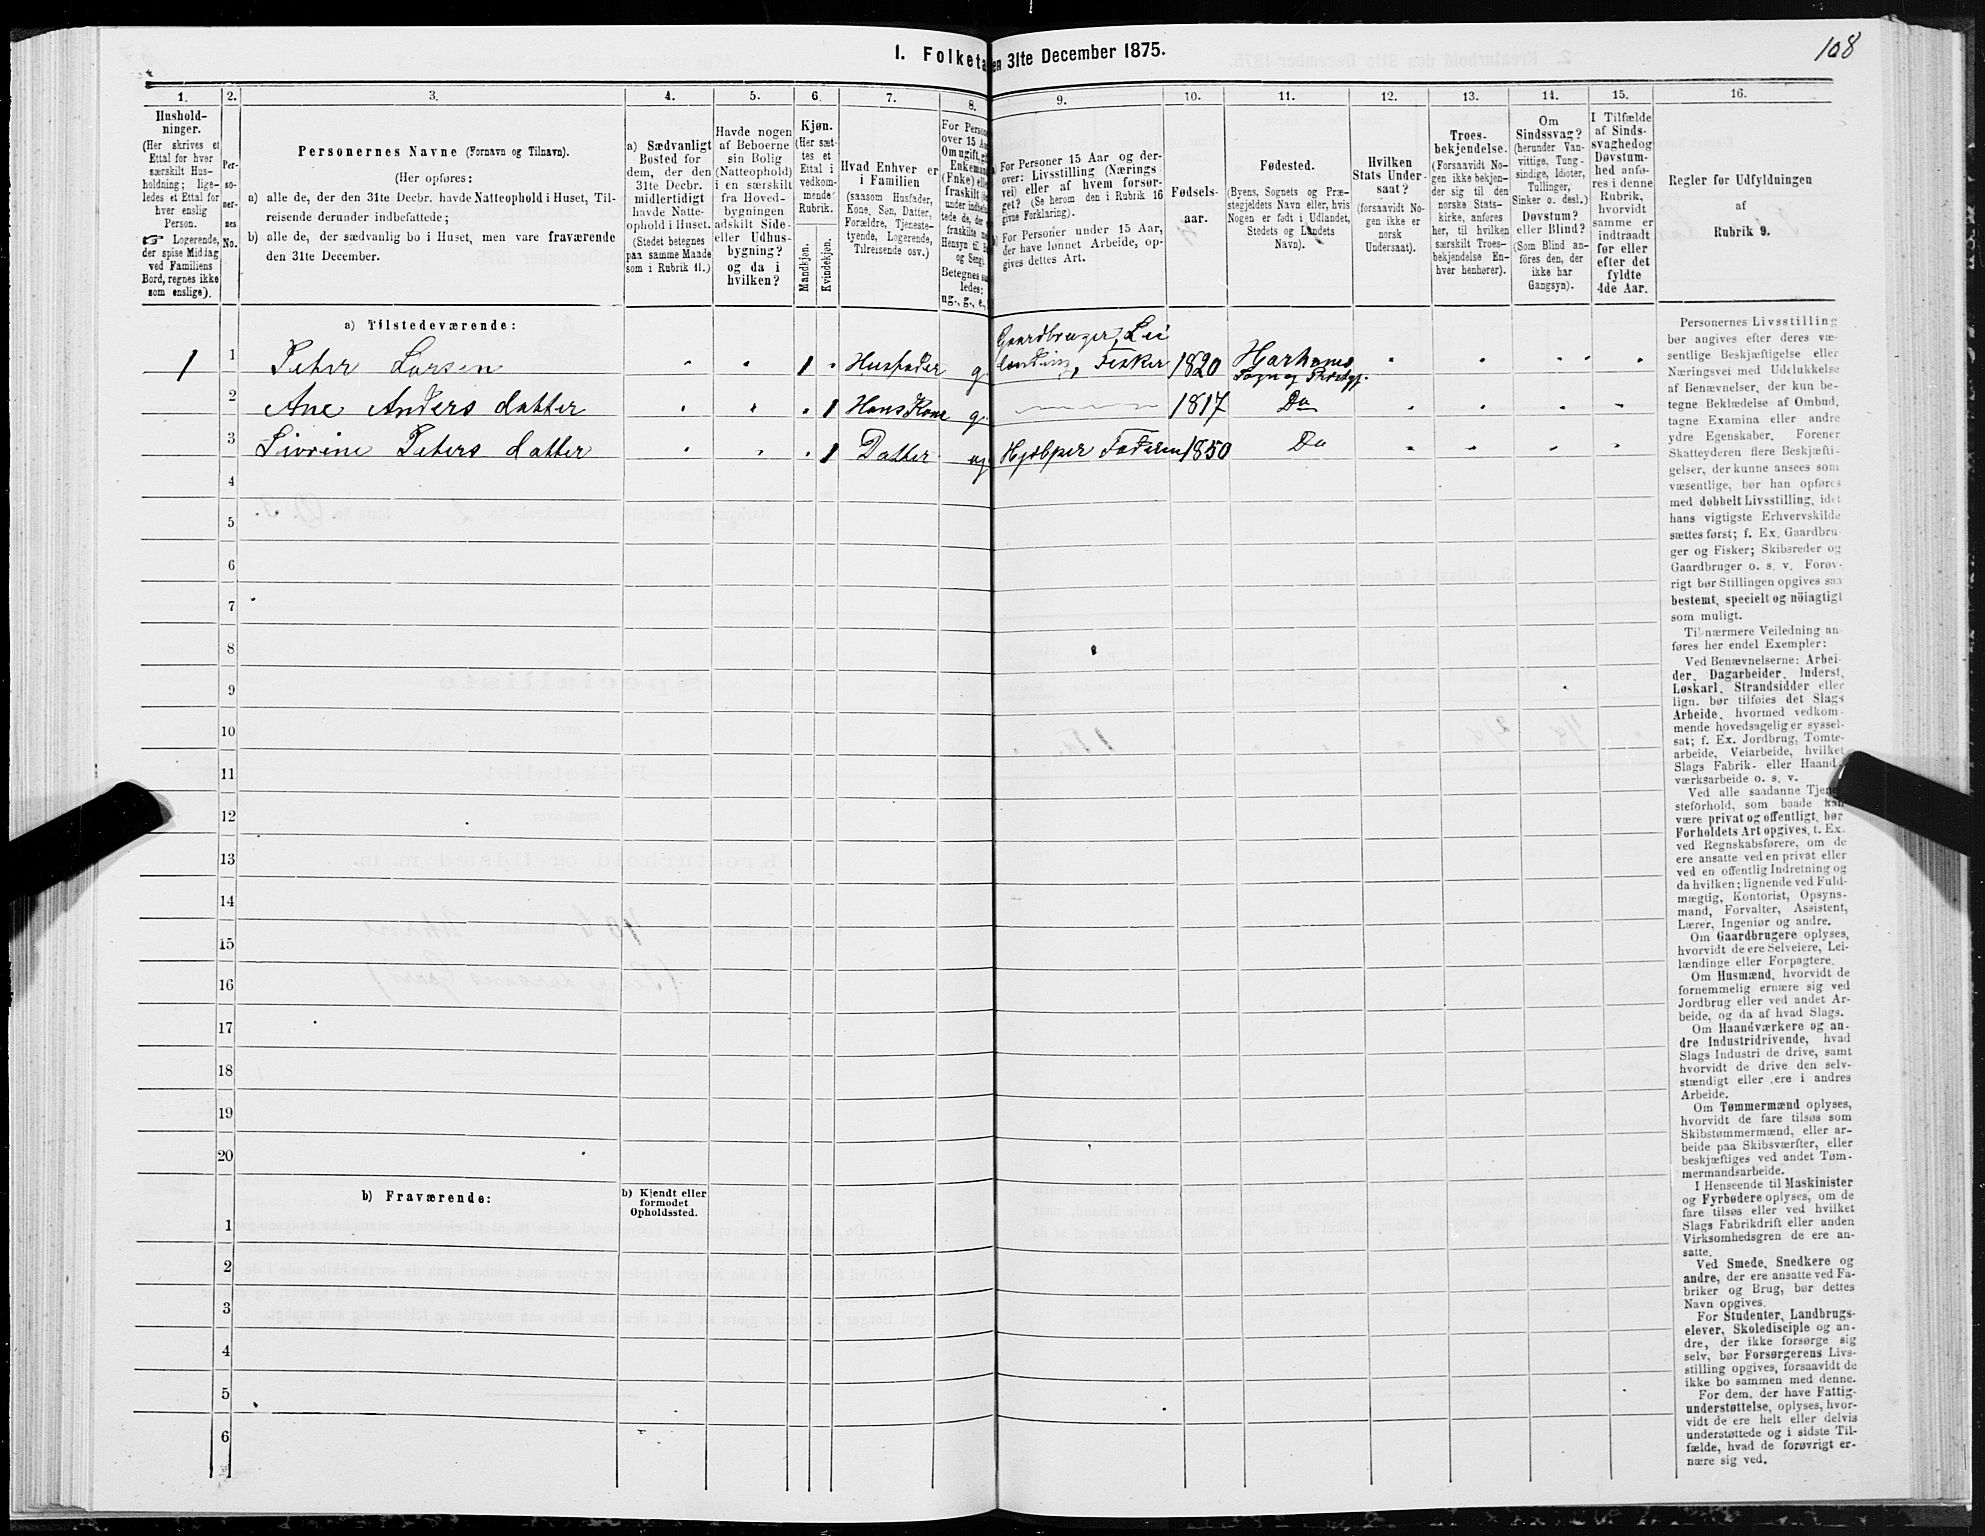 108
I. Folketa en 31te December 1875.
1. 2. 3. 4. 5. 6. 7. 8. 9. 10. 11. 12. 13. 14. 15. 16.
Hushold-
ninger.
(Her skrives et
Ettal for hver
særskilt Hus-
holdning; lige-
ledes et Ettal for
hver enslig
Person.
☞ Logerende,
der spise Middag
ved Familiens
Bord, regnes ikke
som enslige).
Per-
so-
ner-
nes
No.
Personernes Navne (Fornavn og Tilnavn).
(Her opføres:
a) alle de, der den 31te Decbr. havde Natteophold i Huset, Til-
reisende derunder indbefattede;
b) alle de, der sædvanlig bo i Huset, men vare fraværende
den 31te December.
a) Sædvanligt
Bosted for
dem, der den
31te Decbr.
midlertidigt
havde Natte-
ophold i Huset.
(Stedet betegnes
paa samme Maade
som i Rubrik 11.)
Havde nogen
af Beboerne
sin Bolig
(Natteophold)
i en særskilt
fra Hoved-
bygningen
adskilt Side-
eller Udhus-
bygning?
og da i
hvilken?
Kjøn.
(Her sæt-
tes et
Ettal i
vedkom-
mende
Rubrik.
Mandkjøn.
Kvindekjøn.
Hvad Enhver er
i Familien
(saasom Husfader,
Kone, Søn, Datter,
Forældre, Tjeneste-
tyende, Logerende,
Tilreisende osv.)
For Person
over 15 Aa
Om ugift, g
Enkemand
(Enke) ell
fraskilt
under indbe
tede de, der
fraskilte
Hensyn til B
og Seng).
Betegnes sa
ledes:
ug., g., e.,
For Personer 15 Aar og der-
over: Livsstilling (Nærings
vei) eller af hvem forsør-
get? (Se herom den i Rubrik 16
givne Forklaring).
For Personer under 15 Aar,
der have lønnet Arbeide, op-
gives dettes Art.
Fødsels-
aar.
Fødested.
(Byens, Sognets og Præ-
stegjeldets Navn eller, hvis
Nogen er født i Udlandet,
Stedets og Landets
Navn).
Hvilken
Stats Under-
saat?
(forsaavidt No-
gen ikke er
norsk
Undersaat).
Troes-
bekjendelse.
(Forsaavidt No-
gen ikke bekjen-
der sig til den
norske Stats-
kirke, anføres
her, til hvilken
særskilt Troes-
bekjendelse En-
hver henhører).
Om
Sindssvag?
(herunder Van-
vittige, Tung-
sindige, Idioter,
Tullinger,
Sinker o. desl.)
Døvstum?
eller Blind?
(Som Blind an-
føres den, der
ikke har
Gangsyn).
I Tilfælde
af Sinds-
svaghed og
Døvstum-
hed anfø-
res i denne
Rubrik,
hvorvidt
samme er
indtraadt
før eller
efter det
fyldte
4de Aar.
Regler før Udfyldningen
af
Rubrik 9.
a) Tilstedeværende:
1 1 Peter Larsen " " 1 " Husfader g. Gaardbruger, Lei
lending, Fisker 1820 Harhams
Sogn og Prstgj. " " " "
2 Ane Anders datter " " " 1 Hans Kone g. 1817 Do " " " "
3 Livrine Peters datter " " " 1 Datter ug Hjælper Faderen 1850 Do " " " "
4
5
6
7
8
9
10
11
12
13
14
15
16
17
18
19
20
b) Fraværende:
b) Kjendt eller
formodet
Opholdssted.
1
2
3
4
5
6
Personernes Livsstilling
bør angives efter deres væ-
sentlige Beskjæftigelse eller
Næringsvei med Udelukkelse
af Benævnelser, der kun be-
tegne Beklædelse af Ombud,
tagne Examina eller andre
ydre Egenskaber. Forener
Skatteyderen flere Beskjæfti-
gelser, der kunne ansees som
væsentlige, bør han opføres
med dobbelt Livsstilling, idet
hans vigtigste Erhvervskilde
sættes først; f. Ex. Gaardbru-
ger og Fisker; Skibsreder og
Gaardbruger o. s. v. Forøv-
rigt bør Stillingen opgives saa
bestemt, specielt og nöiagtigt
som muligt.
Til nærmere Veiledning an-
føres her endel Exempler:
Ved Benævnelserne: Arbei-
der, Dagarbeider, Inderst,
Løskarl, Strandsidder eller
lign. bør tilføies det Slags
Arbeide, hvormed vedkom-
mende hovedsagelig er syssel-
sat; f. Ex. Jordbrug, Tomte-
arbeide, Veiarbeide, hvilket
Slags Fabrik- eller Haand-
værksarbeide o. s. v.
Ved alle saadanne Tjene-
steforhold, som baade kan
være privat og offentligt, bør
Forholdets Art opgives, t. Ex.
ved Regnskabsførere, om de
ere ansatte ved en privat eller
ved en offentlig Indretning og
da hvilken; lignende ved Fuld-
mægtig, Kontorist, Opsyns-
mand, Forvalter, Assistent,
Lærer, Ingeniør og andre.
Om Gaardbrugere oplyses,
hvorvidt de ere Selveiere, Lei-
lændinge eller Forpagtere.
Om Husmænd, hvorvidt de
fornemmelig ernære sig ved
Jordbrug eller ved andet Ar-
beide, og da af hvad Slags.
Om Haandværkere og an-
dre Industridrivende, hvad
Slags Industri de drive, samt
hvorvidt de drive den selv-
stændigt eller ere i andres
Arbeide.
Om Tømmermænd oplyses,
hvorvidt de fare tilsøs som
Skibstømmermænd, eller ar-
beide paa Skibsværfter, eller
beskjæftiges ved andet Tøm-
mermandsarbeide.
I Henseende til Maskinister
og Fyrbødere oplyses, om de
fare tilsøs eller ved hvilket
Slags Fabrikdrift eller anden
Virksomhedsgren de ere an-
satte.
Ved Smede, Snedkere og
andre, der ere ansatte ved Fa-
briker og Brug, bør dettes
Navn opgives.
For Studenter, Landbrugs-
elever, Skoledisciple og an-
dre, der ikke forsørge sig
selv, bør Forsørgerens Livs-
stilling opgives, forsaavidt de
ikke bo sammen med denne.
For dem, der have Fattig-
understøttelse, oplyses, hvor-
vidt de ere helt eller delvis
understøttede og i sidste Til-
fælde, hvad de forøvrigt er-
nære sig ved.